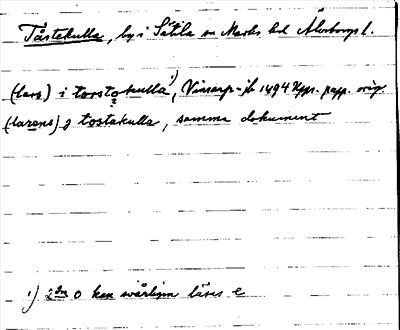 Tåstekulla, by i Sätila sn Marks hd Älvsborgs l.
(lars) i torstokulla¹⁾, Vinsarp-jb 1494 Uppr. papp. orig
(larens) j tostakulla, samma dokument
1) 2dn o kan svårligen läses e